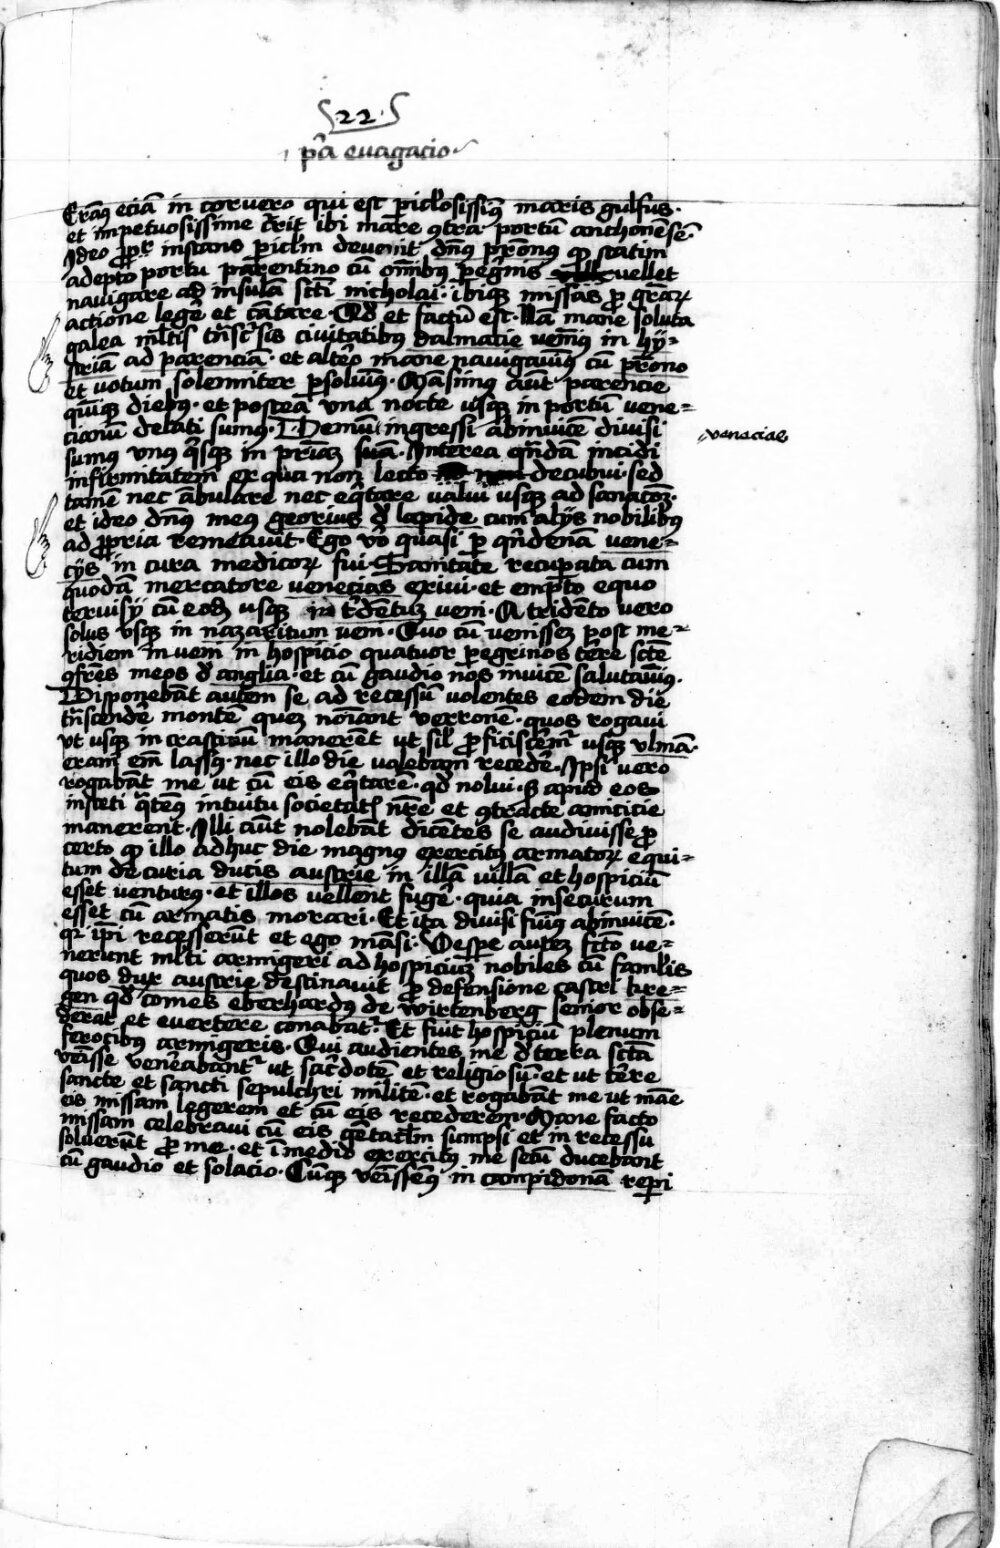 22
pͣa evagacio
Eramꝰ eciā in corvero qui est piclosissimꝰ maris gulfus·
et impetuosissime c̄rit ibi mare ꝯtra portū anthonēse·
Ideo ꝓpͬ instans piclm devenit dn̄ꝰ pr̄onꝰ ꝙ statim
adepto portu parentino cū om̄ibus peg̓nis vellet
navigare ad insulā sct̄i nicholai· ibiqꝫ missas ꝓ gr̄aꝝ
actione leg̓e et cātare· Qd̓ et factū est· Nā mane soluta
galea ml̓tis tn̄sc̓sis civitatibus dalmatie venimꝰ in hy⸗
striam ad parenciā· et alt̓o mane navigavimꝰ cū pr̄ono
et votum solemniter ꝑsolvimꝰ· Māsimꝰ aūt parencie
qui̅qꝫ diebꝰ· et postea una nocte usqꝫ in portū vene⸗
cianū delati sumꝰ· Demū ingressi abinvicē divisi
sumꝰ unꝰ qͥsqꝫ in pr̄iam suā· Interea qn̄dā incidi
infirmitatem ex qua non lecto decubui· sed
tamē nec ābulare nec eqͥtare valui usqꝫ ad sanatōꝫ·
et ideo dn̄ꝰ meꝰ georius d̓ lapide cum alijs nobilibꝰ
ad ꝓpria remeavit· Ego vͦo quasi ꝑ qn̄denā vene⸗
cijs in cura medicoꝝ fui· Sanitate recuꝑata cum
quodā mercatore venecias exivi· et empto equo
tervisij cū eodē usqꝫ in t̓dentuꝫ veni· A tridēto vero
solus usqꝫ in nazaritum veni· Quo cū venisseꝫ post me⸗
ridiem inveni in hospicio quatuor ꝑegrinos t̄ere sct̄e
ꝯfr̄es meos d̓ anglia· et cū gaudio nos invicē salutavimꝰ·
Disponebāt autem se ad recessū volentes eodem die
tn̄scendēre montē queꝫ noīant verronē· quos rogavi
ut usqꝫ in crastinū manerēt ut sil̓ ꝓficiscēremꝰ usqꝫ vlmā·
eram em̄ lassꝰ· nec illo die volebam recedēre· Ipsi vero
rogabāt me ut cū eis eqͥtarē· qd̓ nolui· Sꝫ apud eos
insteti qͣtenꝰ intuitu societatꝭ nr̄e et ꝯtracte amicicie
manerent· Illi aūt nolebāt dicētes se audivisse ꝓ
certo ꝙ illo adhuc die magnꝰ exercitꝰ armatoꝝ equi⸗
tum de curia ducis austrie in illā villā et hospiciū
esset venturꝰ· et illos vellent fugēre· quia insecurum
esset cū armatis morari· Et ita divisi fuimꝰ abinvicē·
qꝛ ip̄i recesserūt et ego māsi· Vespe auteꝫ fcō ve⸗
nerunt ml̓ti armigeri ad hospiciū nobiles cū famulis
quos dux austrie destinavit ꝓ defensione castri bre⸗
gen qd̓ comes eberhardꝰ de wirtenberg senior obse⸗
derat et evertere conabatͬ· Et fuit hospiciū plenum
ferocibꝰ armigeris· Qui audientes me d̓ terra sctā
venisse venerabantͬ ut sac̓dotē et religiosū· et ut t̓re
sancte et sancti sepulchri militē· et rogabāt me ut māe
eis missam legerem et cū eis recederem· Mane facto
missam celebravi cū eis gētaclm sumpsi et in recessu
solverūt ꝓ me· et ī medio exercitꝰ me secū ducebant
cū gaudio et solacio· Cūqꝫ venissemꝰ in campidonā repi
venaciae